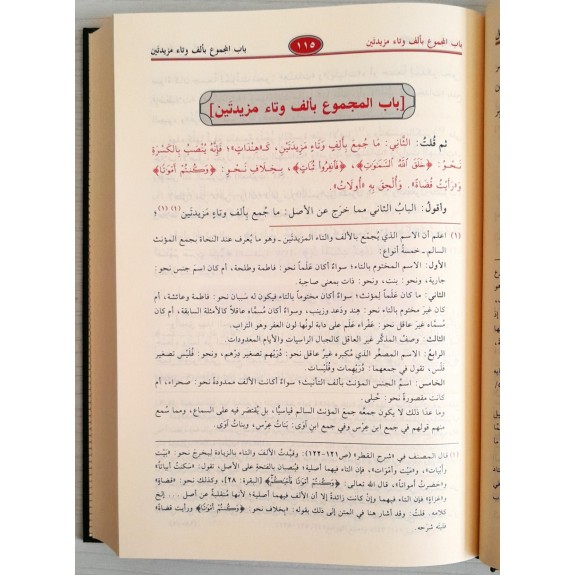 باب المجموع بألف وتاء مزيدتَين
١١٥
باب المجموع بألف وتاء مزيدتَين
[باب المجموع بألف وتاء مزيدتَين]
ثم قُلتُ: الثَّانِي: مَا جُمِعَ بِأَلِفٍ وَتَاءٍ مَزِيدَتَيْنِ، كَـ«هِنْدَاتٍ»؛ فَإِنَّهُ يُنْصَبُ بِالكَسْرَةِ
نَحْوُ: ﴿خَلَقَ اللَّهُ السَّمَوَتِ﴾، ﴿فَانفِرُوا ثُبَاتٍ﴾، بِخِلَافِ نَحْوِ: ﴿وَكُنتُمْ أَمْوَتًا﴾
وَ«رَأَيْتُ قُضَاةً». وَأُلْحِقَ بِهِ «أُولَاتُ».
وأقولُ: البابُ الثاني مما خرَج عن الأصل: ما جُمِع بألِف وتاءٍ مَزيدتَين (١)(١)؛
(١) اعلم أن الاسم الذي يُجمَع بالألف والتاء المزيدتَين ـ وهو ما يُعرف عند النحاة بجمع المؤنث
السالم ـ خمسةُ أنواع:
الأول: الاسم المختوم بالتاء؛ سواءٌ أكان عَلَماً نحو: فاطمة وطلحة، أم كان اسم جنس نحو:
جارية، ونحو: بنت، ونحو: ذات بمعنى صاحبة.
الثاني: ما كان عَلَماً لِمؤنث؛ سواءٌ أكان مختوماً بالتاء فيكون له سَببان نحو: فاطمة وعائشة، أم
كان غيرَ مختوم بالتاء نحو: هِند ودَعد وزينب، وسواءٌ أكان مُسمَّاه عاقلاً كالأمثلة السابقة، أم كان
مُسمَّاه غيرَ عاقل نحو: عَفْراء عَلَم على دابة لونُها لون العفر وهو التراب.
الثالث: وصفُ المذكَّر غير العاقل كالجبال الراسيات والأيام المعدودات.
الرابع: الاسم المصغَّر الذي مُكبره غيرُ عاقل، نحو: دُرَيْهِم تصغير دِرْهَم، ونحو: فُلَيْس تصغير
فَلْس، تقول في جمعهما: دُرَيْهِمات وفُلَيْسات.
الخامس: اسمُ الجنس المؤنث بألف التأنيث؛ سواءٌ أكانت الألف ممدودةً نحو: صَحراء، أم
كانت مقصورةً نحو: حُبلى.
وما عدا ذلك لا يكون جمعُه جمعَ المؤنث السالم قياسيًّا، بل يُقتصَر فيه على السماع، ومما سُمع
منهم قولهم في جمع ابن عِرْس وفي جمع ابنِ آوى: بَناتُ عِرْس، وبناتُ آوى.
(١) قال المصنف في «شرح القطر» (ص١٢١-١٢٢): وقيدتُ الألف والتاء بالزيادة ليخرجَ نحو: «بَيْت
وأبيات»، و«مَيْت وأموات»، فإن التاء فيهما أصلية؛ فيُنصبان بالفتحة على الأصل، تقول: «سكنتُ أبياتاً»
و«حضرتُ أمواتاً»، قال الله تعالى: ﴿وَكُنتُمْ أَمْوَتًا فَأَحْيَكُمْ﴾ [البقرة: ٢٨]، وكذلك نحو: «قضاة»
و«غزاة» فإن التاء فيهما وإنْ كانت زائدةً إلا أن الألف فيهما أصلية؛ لأنها مُنقلبةٌ عن أصل
إلخ
كلامه. قلتُ: وقد أشار هنا في المتن إلى ذلك بقوله: «بخلاف نحو: ﴿وَكُنتُمْ أَمْوَتًا﴾ ورأيت قضاة»
قبله شرَحه.